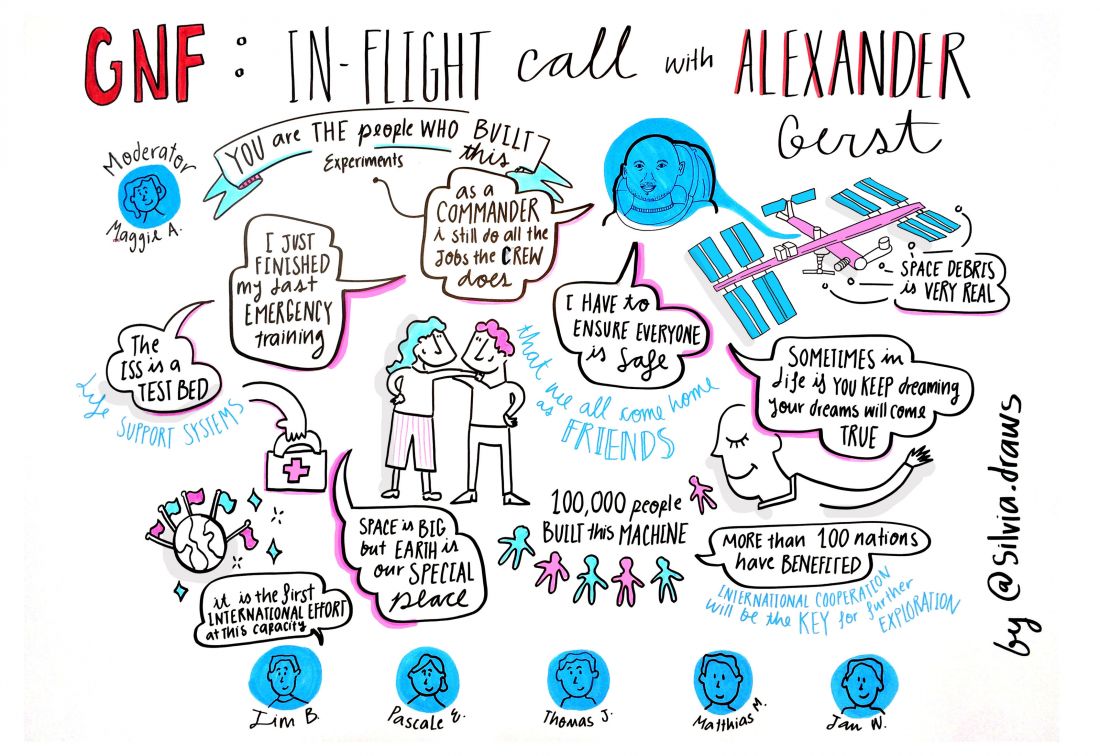 GNF: IN-FLIGHT call with ALEXANDER
Gerst
YOU are THE people WHO BUILT
this
Experiments
Moderator
Maggie A.
as a
COMMANDER
i still do all the
Jobs the CREW
does
I JUST
FINISHED
my last
EMERGENCY
training
I HAVE to
ENSURE EVERYONE
is safe
SPACE DEBRIS
is VERY REAL
The
ISS is a
TEST BED
Life SUPPORT SYSTEMS
that we all come home
as
FRIENDS
SOMETIMES in
life is YOU KEEP dreaming
your dreams will come
TRUE
SPACE is BIG
but EARTH is
our SPECIAL
place
100,000 people
BUILT this MACHINE
MORE than 100 nations
have BENEFITED
INTERNATIONAL COOPERATION
will be the KEY for further
EXPLORATION
it is the first
INTERNATIONAL EFFORT
at this capacity
by @Silvia.draws
Jim B.
Pascale E.
Thomas J.
Matthias M.
Jan W.